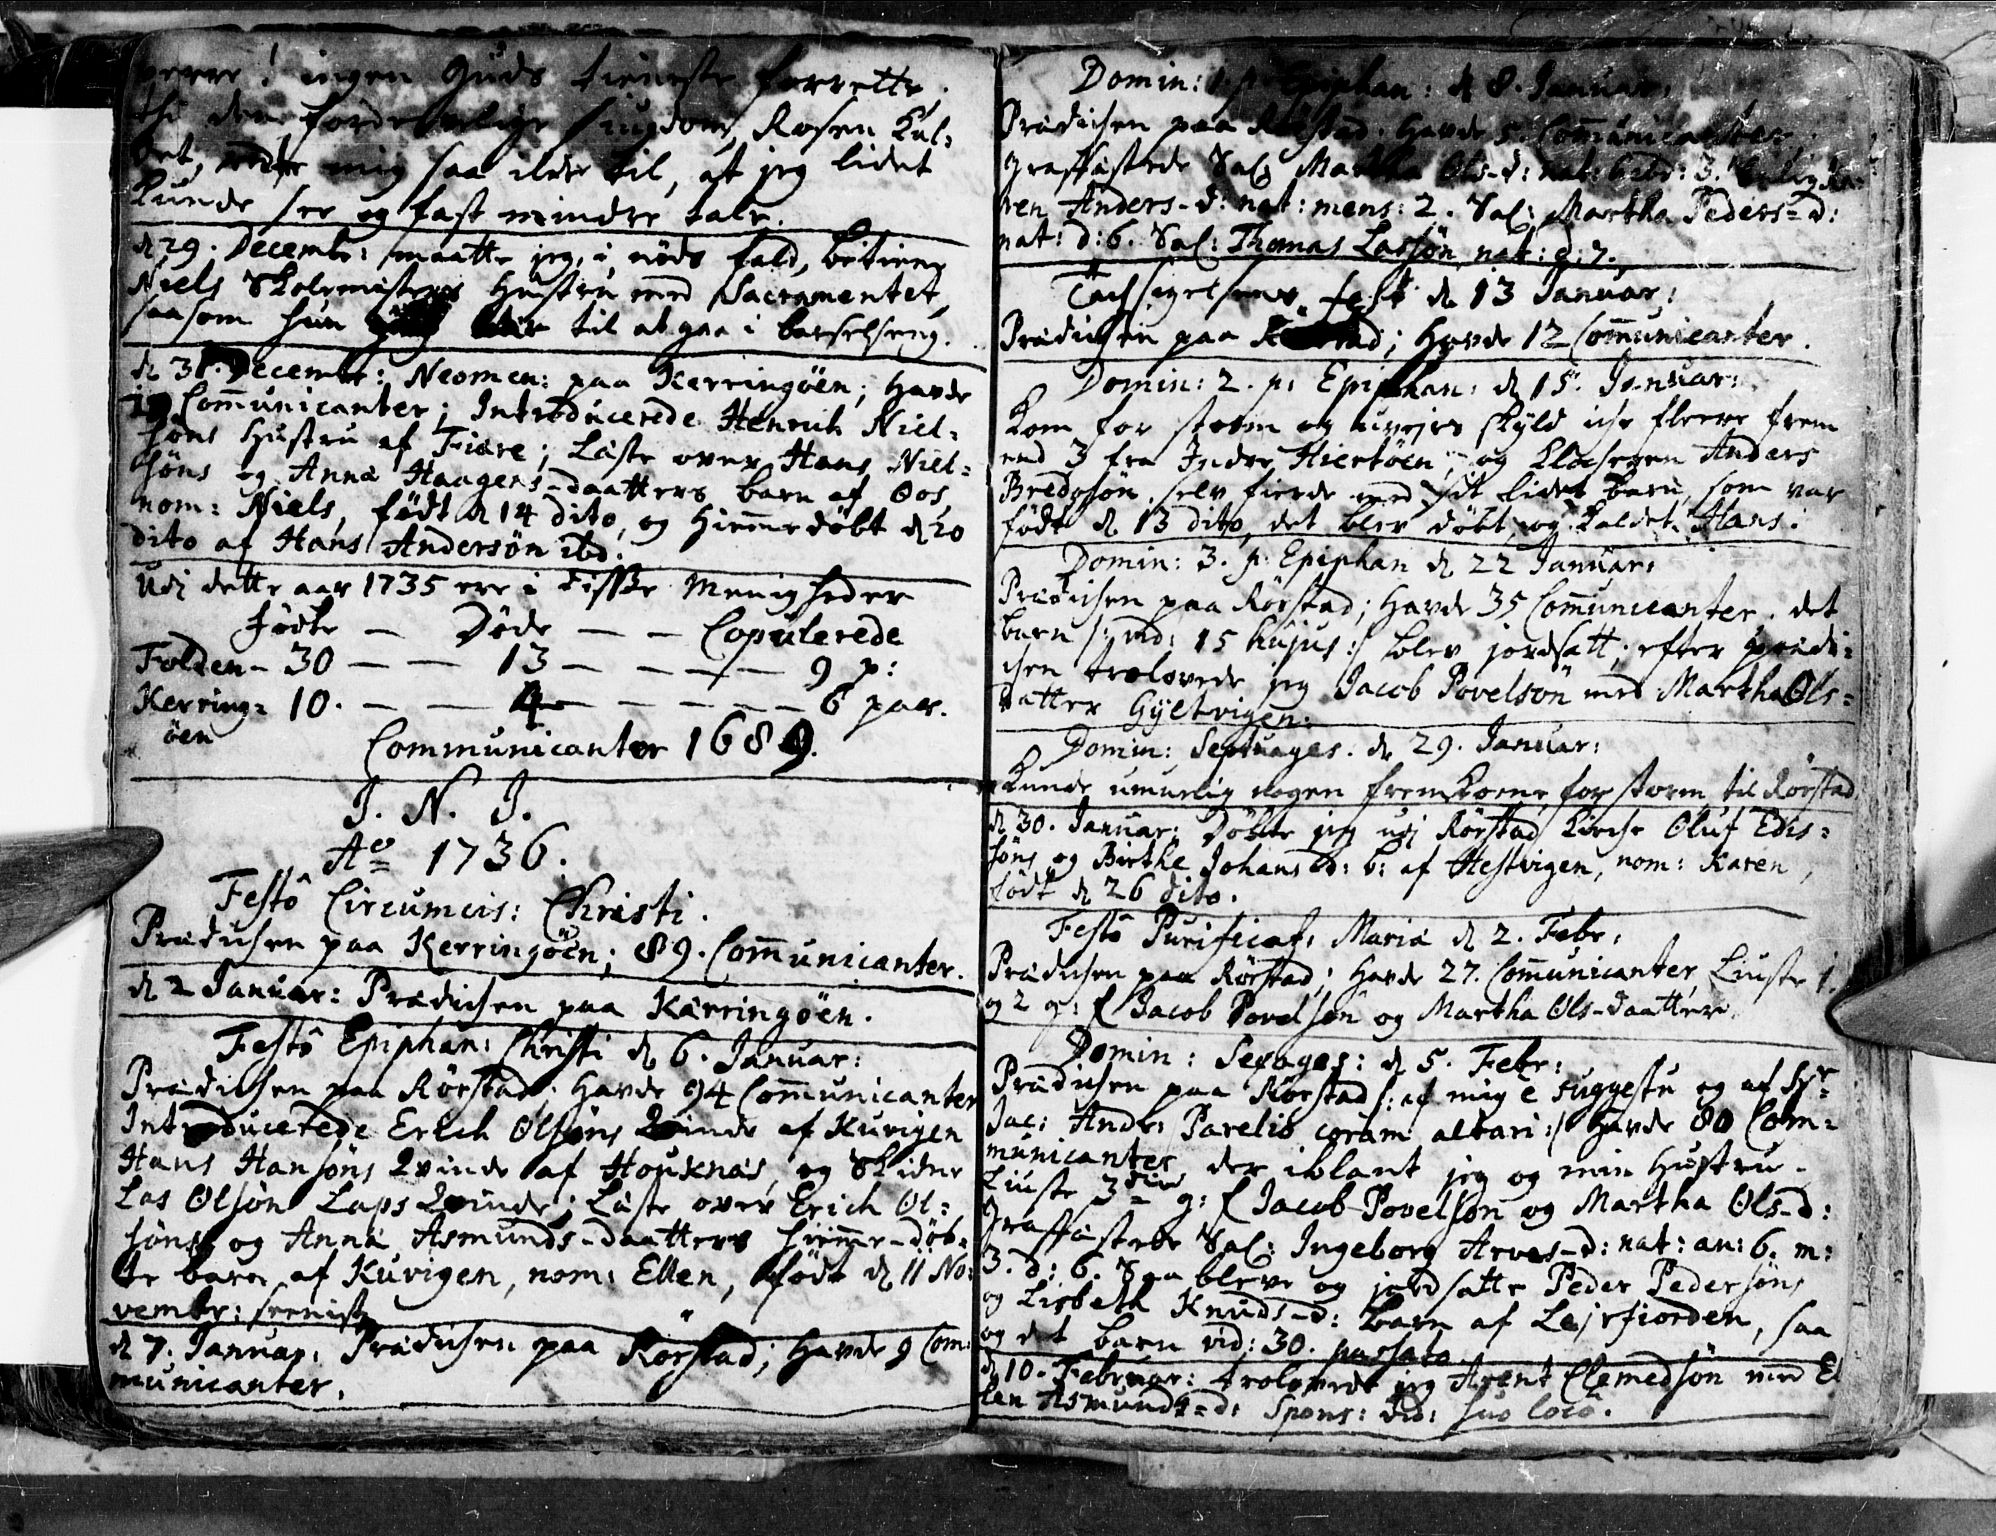 verre! ingen Guds tieneste forrette.
thi den fordervelige Siugdom, Rosen kal-
det, mig saa ilde til, at jeg lidet
kunde see og fast mindre tale.
d 29. Decembr: maatte jeg, i nøds fald, betiene
Niels Skolemesters Hustru med Sacramentet,
saasom hun til at gaa i barselseng.
d 31. Decembr: Neomen: paa Kerringöen; Havde
Communicanter; Introducerede Henrich Niel-
söns Hustru af Fiære; Læste over Hans Niel-
söns og Anna Haagens-daatters barn af Oos
nom: Niels, födt d 14 dito, og Hiemmedöbt d 20
dito af Hans Andersön ibd.
Udj dette aar 1735 ere i disse Menigheder
Födte — Döde — — Copulerede
Folden - 30 — — 13 — — — — 9 p:
Kerring- 10. — — 4 — — — — — 6 par.
öen
Communicanter 1689.
J. N. J.
Aº 1736.
Festô Circumcis: Christi.
Prædichen paa Kerringöen; 89. Communicanter.
d 2 Januar: Prædichen paa Kærringöen.
Festô Epiphan: Christi d 6. Januar:
Prædichen paa Rörstad; Havde 94 Communicanter
Introducerede Erich Olsöns Qvinde af Kuvigen
Hans Hansöns Qvinde af Houknæs, og Skidne
Las Olsön Laps Qvinde; Læste over Erich Ol-
söns og Anna Asmunds-daatters hiemme-döb-
te barn af Kuvigen, nom: Ellen, födt d 11 No-
vembr: seenist
d 7. Januar: Prædichen paa Rörstad; Havde 9 Com-
municanter.
Domin: 1. p. Epiphan: d 8. Januar:
Prædichen paa Rörstad. Havde 5 Communicanter.
Graffæstede Sal: Martha Ols-d: nat: hebd: 3.
ren Anders-d: nat: mens: 2. Sal: Martha Peders-d:
nat: d: 6. Sal: Thomas Lassön nat: d: 7.
Tachsigelsens fest d 13 Januar:
Prædichen paa Rörstad; Havde 12 Communicanter.
Domin: 2. p: Epiphan: d 15. Januar:
Kom for storm og uvejrs skyld iche fleere frem
end 3 fra Indre Hiertöen, og Klocheren Anders
Bredesön selv fierde med sit lidet barn, som var
födt d 13 dito, det blev döbt og kaldet Hans.
Domin: 3. p. Epiphan d 22 Januar:
Prædichen paa Rörstad; Havde 35 Communicanter. det
barn /: vid: 15 hujus :/ blev jordsatt; efter prædi-
chen trolovede jeg Jacob Povelsön med Martha Ols-
datter Gyeltvigen.
Domin: Septuages. d 29. Januar:
Kunde umuelig nogen fremkome for storm til Rörstad
d 30. Januar: Döbte jeg udj Rörstad Kirche Oluf Edis-
söns og Birthe Johans-d: b: af Hestvigen, nom: Karen,
födt d 26 dito.
Festô Purificat: Mariæ d 2. Febr:
Prædichen paa Rörstad; Havde 27. Communicanter, Liuste 1.
og 2 g: f Jacob Povelsön og Martha Ols-daatter.
Domin: Sexages: d 5. Febr:
Prædichen paa Rörstad /: af mig è suggestu og af Hr
Jac: Andr: Parelio coram altari :/ Havde 80 Com-
municanter, der iblant jeg og min Hustru.
Liuste 3die g: f Jacob Povelsön og Martha Ols-d:
Graffæstede Sal: Ingeborg Arves-d: nat: an: 6. m:
3. d: 6. Saa bleve og jordsatte Peder Pedersöns
og Lisbeth Knuds-d: barn af Lejrfiorden, saa
og det barn vid: 30. passato
d 10. Februar: trolovede jeg Arent Clemedsön med El
len Asmunds-d: Spons: vid: suo locô.